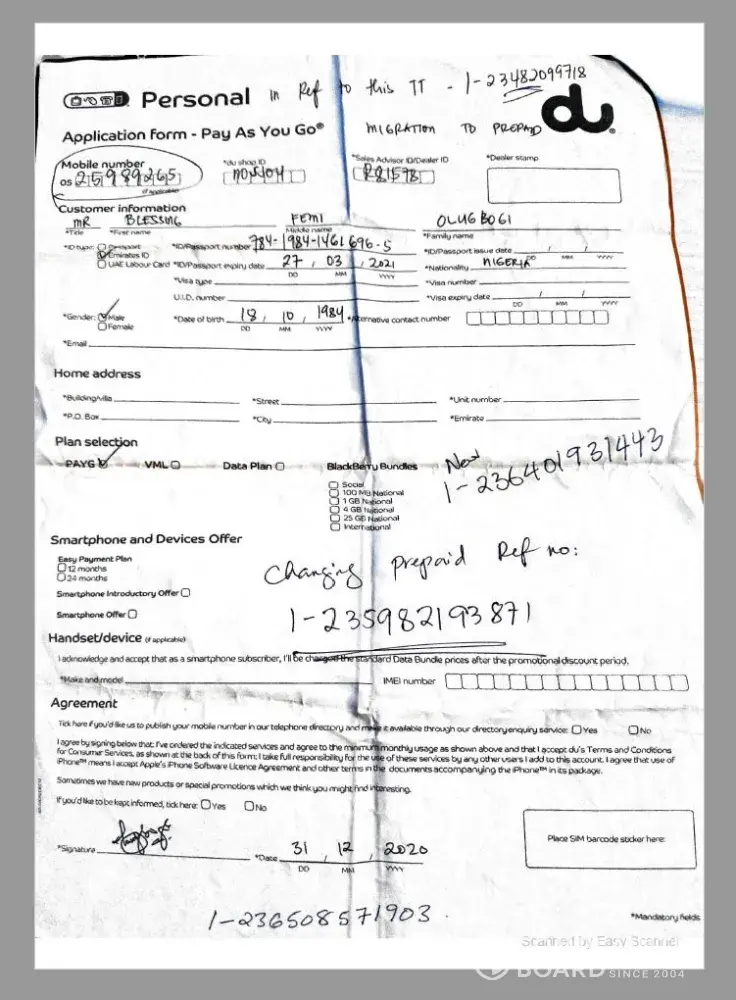 in Ref to this TT - 1-23482099718
Personal
du
Application form - Pay As You Go®
MIGRATION TO PREPAID
Mobile number
05 25989265
if applicable
*du shop ID
*Sales Advisor ID/Dealer ID
R81578
*Dealer stamp
Customer information
MR BLESSING FEMI OLUGBOGI
*Title *First name Middle name *Family name
*ID type: Passport *ID/Passport number 784-1984-1461696-5 *ID/Passport issue date / /
DD MM YYYY
Emirates ID
UAE Labour Card *ID/Passport expiry date 27 / 03 / 2021 *Nationality NIGERIA
DD MM YYYY
*Visa type *Visa number
U.I.D. number *Visa expiry date / /
DD MM YYYY
*Gender: Male *Date of birth 18 / 10 / 1984 *Alternative contact number
Female DD MM YYYY
*Email
Home address
*Building/villa *Street *Unit number
*P.O. Box *City *Emirate
Plan selection
PAYG VML Data Plan BlackBerry Bundles
New
1-236401931443
Social
100 MB National
1 GB National
4 GB National
25 GB National
International
Smartphone and Devices Offer
Easy Payment Plan
12 months
24 months
Changing prepaid Ref no:
Smartphone Introductory Offer
Smartphone Offer
1-235982193871
Handset/device (if applicable)
I acknowledge and accept that as a smartphone subscriber, I'll be charged the standard Data Bundle prices after the promotional discount period.
*Make and model IMEI number
Agreement
Tick here if you'd like us to publish your mobile number in our telephone directory and make it available through our directory enquiry service: Yes No
I agree by signing below that: I've ordered the indicated services and agree to the minimum monthly usage as shown above and that I accept du's Terms and Conditions
for Consumer Services, as shown at the back of this form; I take full responsibility for the use of these services by any other users I add to this account. I agree that use of
iPhone™ means I accept Apple's iPhone Software Licence Agreement and other terms in the documents accompanying the iPhone™ in its package.
Sometimes we have new products or special promotions which we think you might find interesting.
If you'd like to be kept informed, tick here: Yes No
Place SIM barcode sticker here:
*Signature *Date 31 / 12 / 2020
DD MM YYYY
1-236508571903
*Mandatory fields
Scanned by Easy Scanner
BOARD SINCE 2004